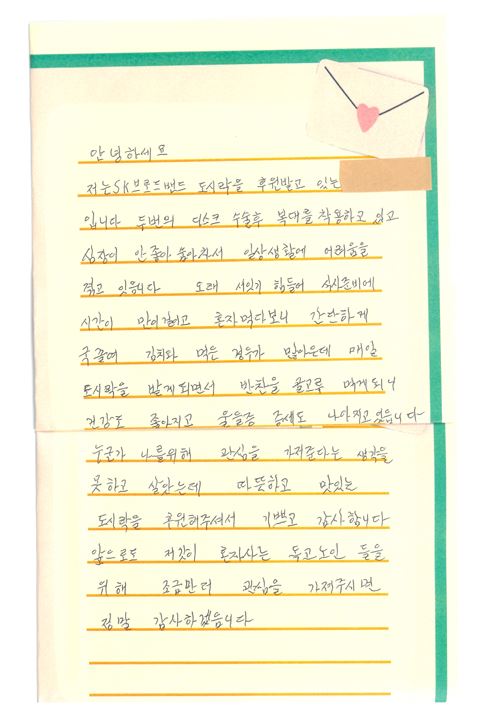 안녕하세요
저는 SK브로드밴드 도시락을 후원받고 있는
입니다 두번의 디스크 수술후 복대를 착용하고 있고
심장이 안좋아 숨이차서 일상생활에 어려움을
겪고 잇음니다 도래 서있기 힘들어 식사준비에
시간이 많이걸리고 혼자먹다보니 간단하게
국끓여 김치와 먹은 경우가 많아은데 매일
도시락을 받게되면서 반찬을 골고루 먹게되니
건강도 좋아지고 울을증 증세도 나아지고있읍니다
누군가 나를위해 관심을 가져준다는 생각을
못하고 살앗는데 따뜻하고 맛있는
도시락을 후원해주셔서 기쁘고 감사합니다
앞으로도 저깃이 혼자사는 독고노인 들을
위해 조금만더 관심을 가져주시면
정말 감사하겠읍니다